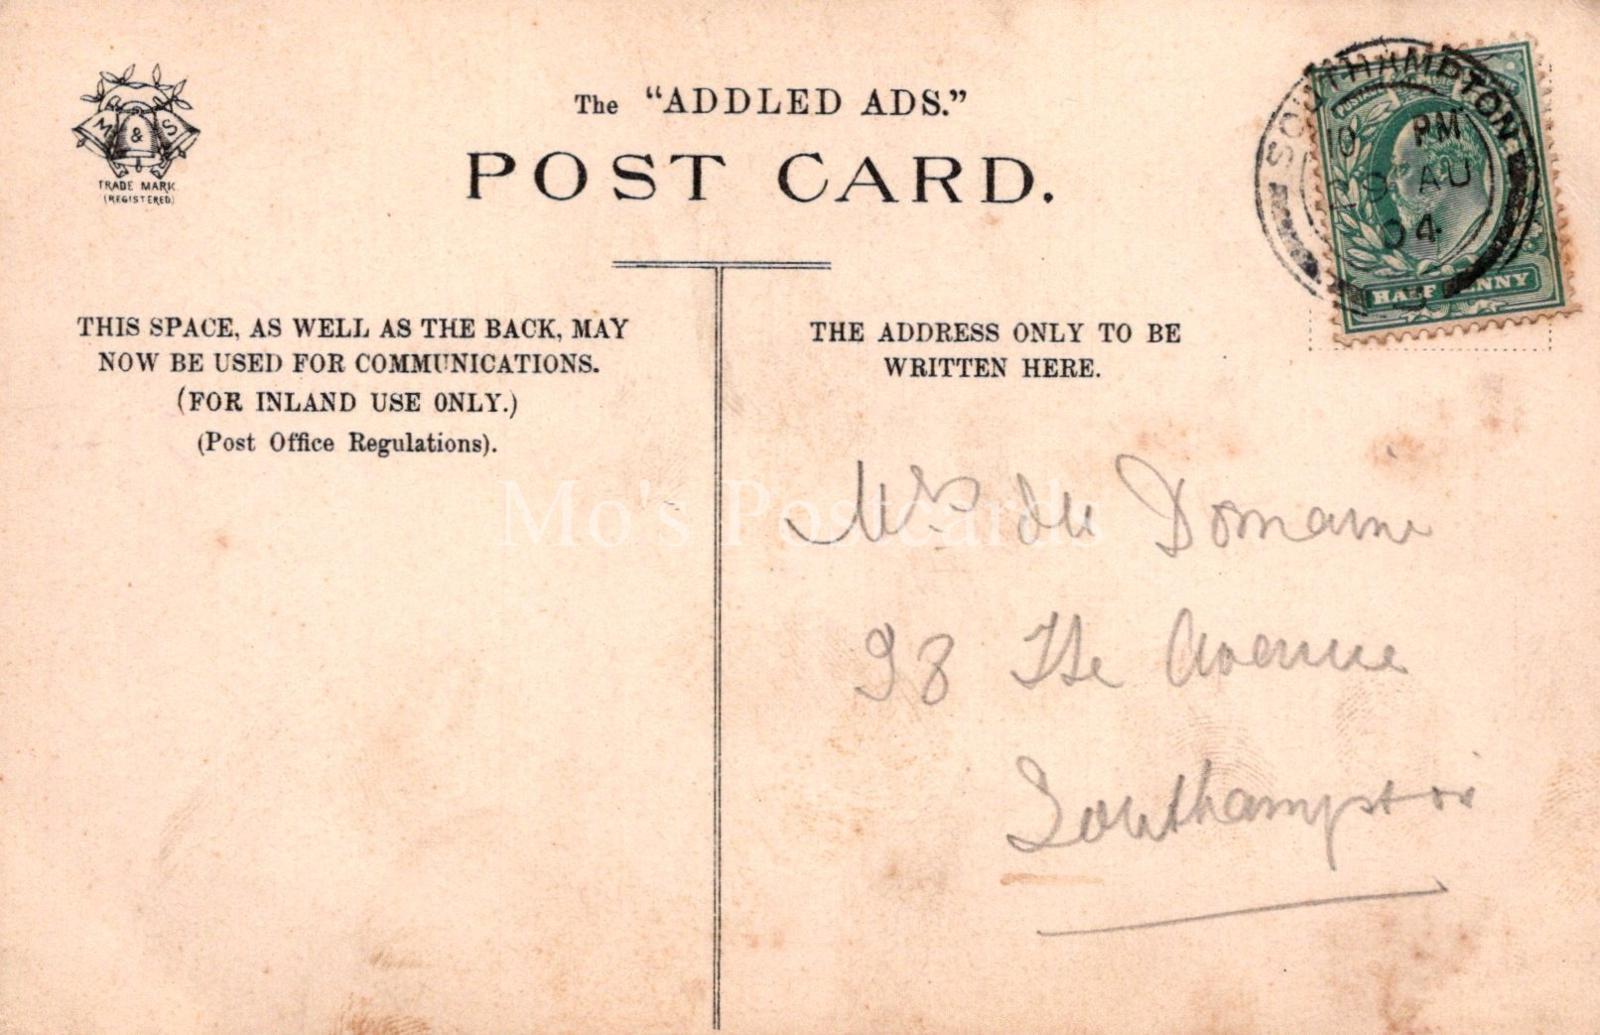 M & S
TRADE MARK
(REGISTERED)
The "ADDLED ADS."
POST CARD.
SOUTHAMPTON
10 PM
AU
04
HALF PENNY
THIS SPACE, AS WELL AS THE BACK, MAY
NOW BE USED FOR COMMUNICATIONS.
(FOR INLAND USE ONLY.)
(Post Office Regulations).
THE ADDRESS ONLY TO BE
WRITTEN HERE.
Mo's Postcards
Mrs du Domaine
98 The Avenue
Southampton